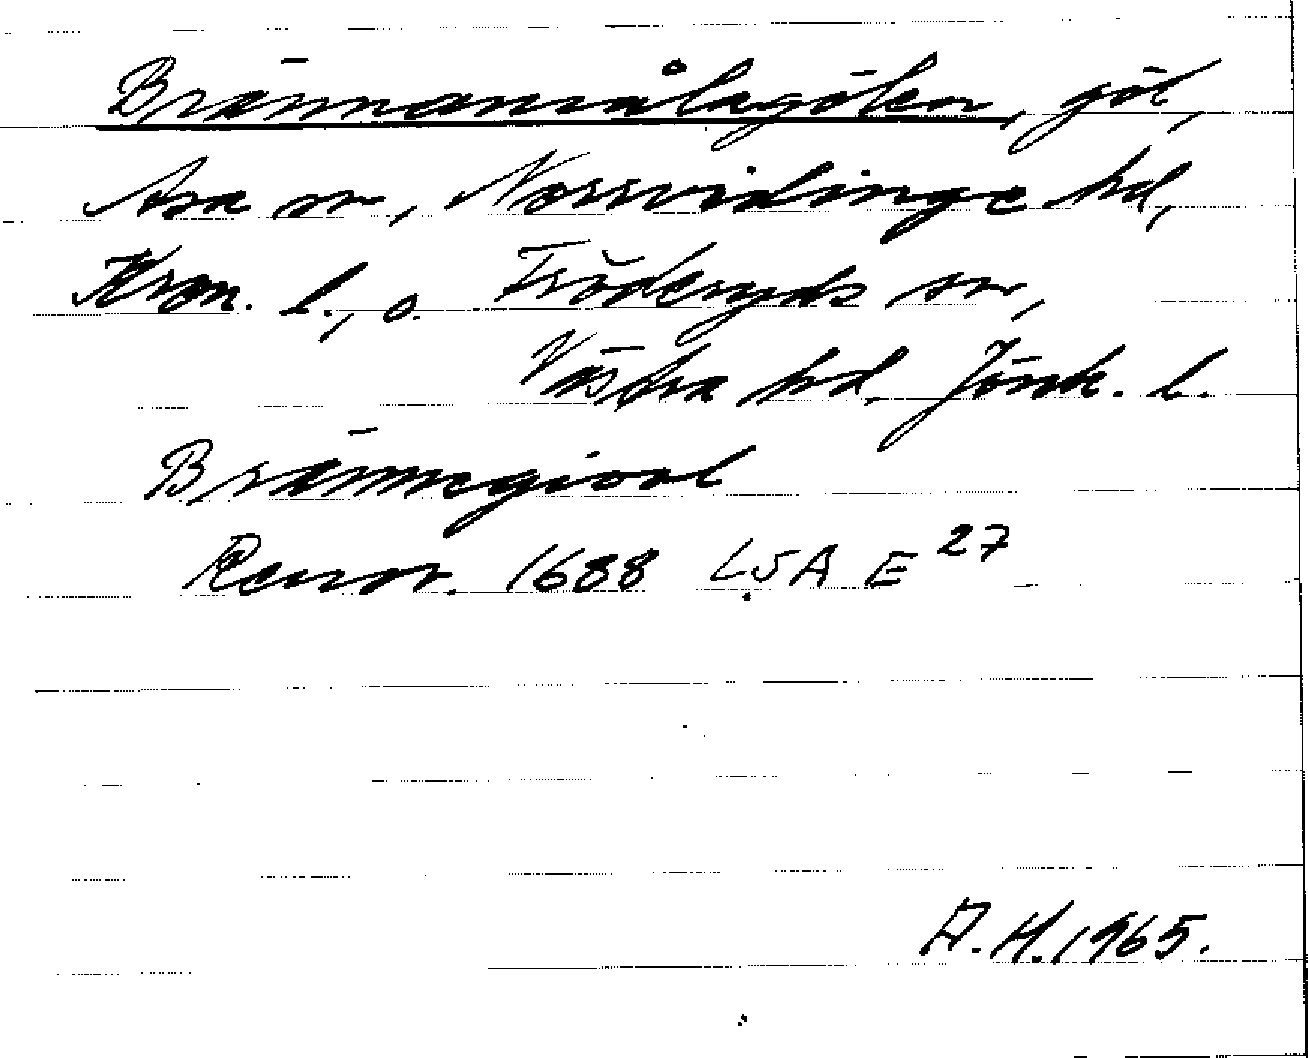 Brännamålagölen, göl,
Asa sn, Norrvidinge hd,
Kron. l., o. Fröderyds sn,
Västra hd. Jönk. l.
Brännegiöol
Renov. 1688 LSA E 27
A.H. 1965.